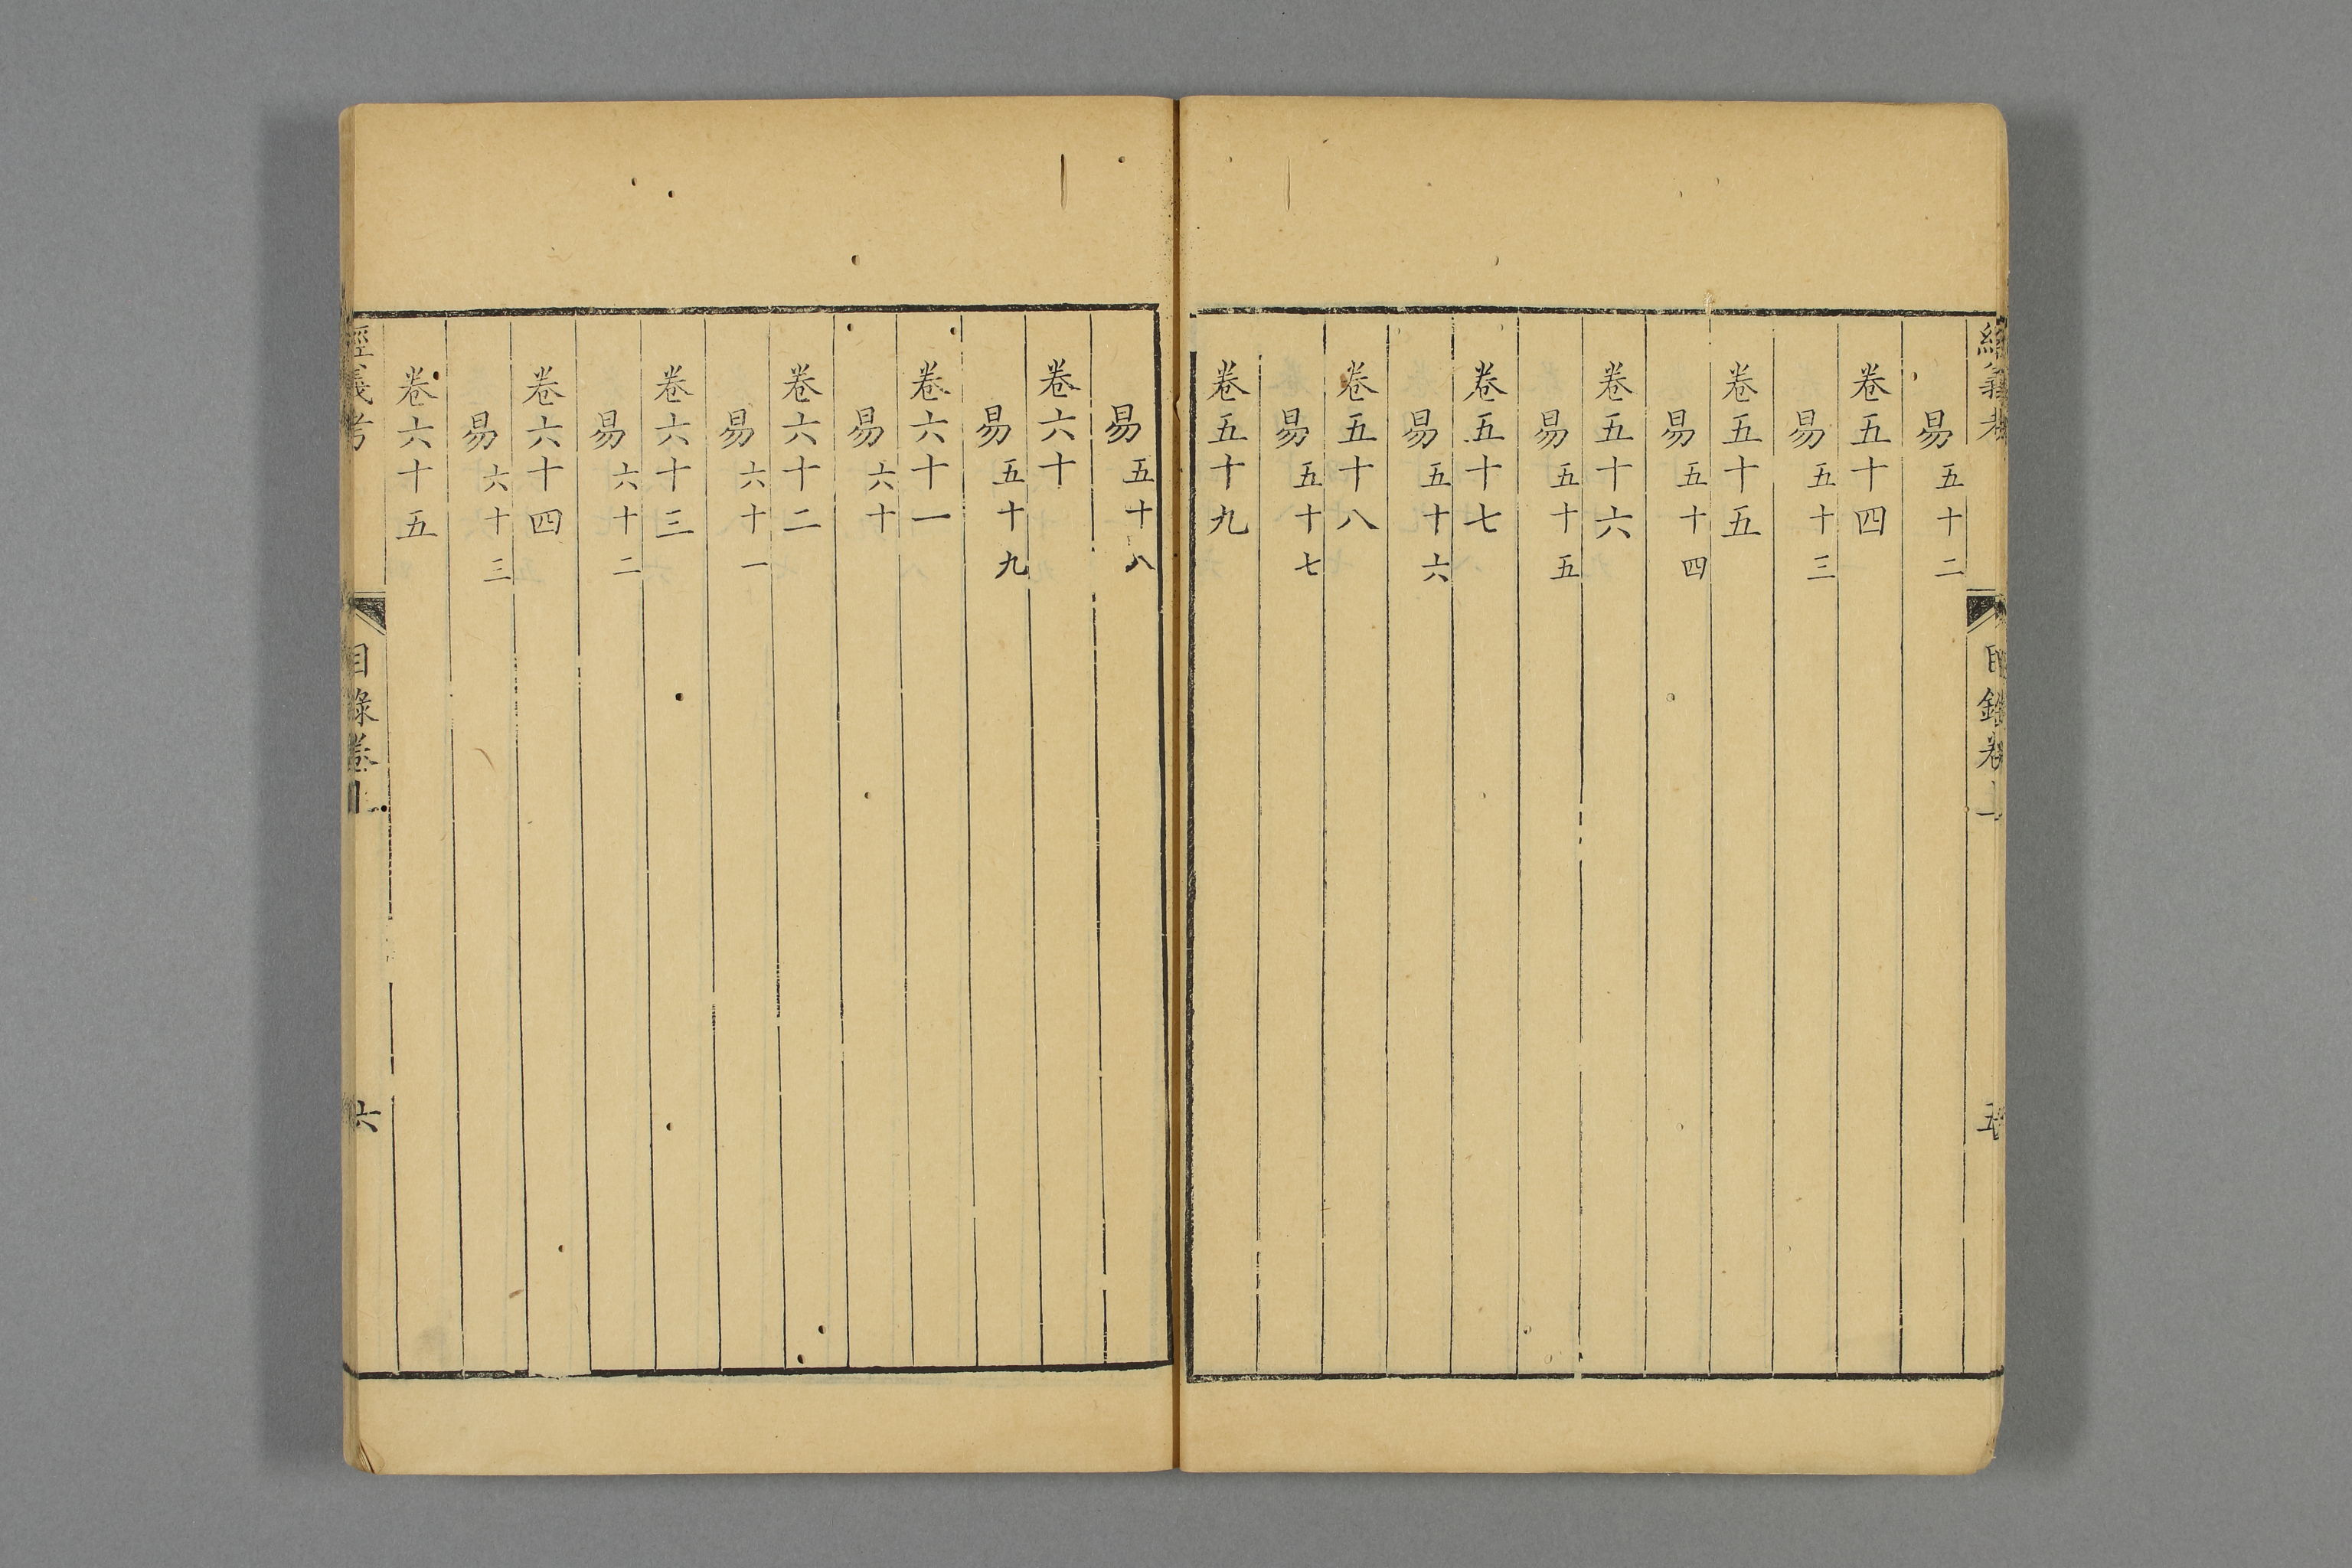 經義考
目錄卷上
五
易五十二
卷五十四
易五十三
卷五十五
易五十四
卷五十六
易五十五
卷五十七
易五十六
卷五十八
易五十七
卷五十九
易五十八
卷六十
易五十九
卷六十一
易六十
卷六十二
易六十一
卷六十三
易六十二
卷六十四
易六十三
卷六十五
經義考
目錄卷上
六